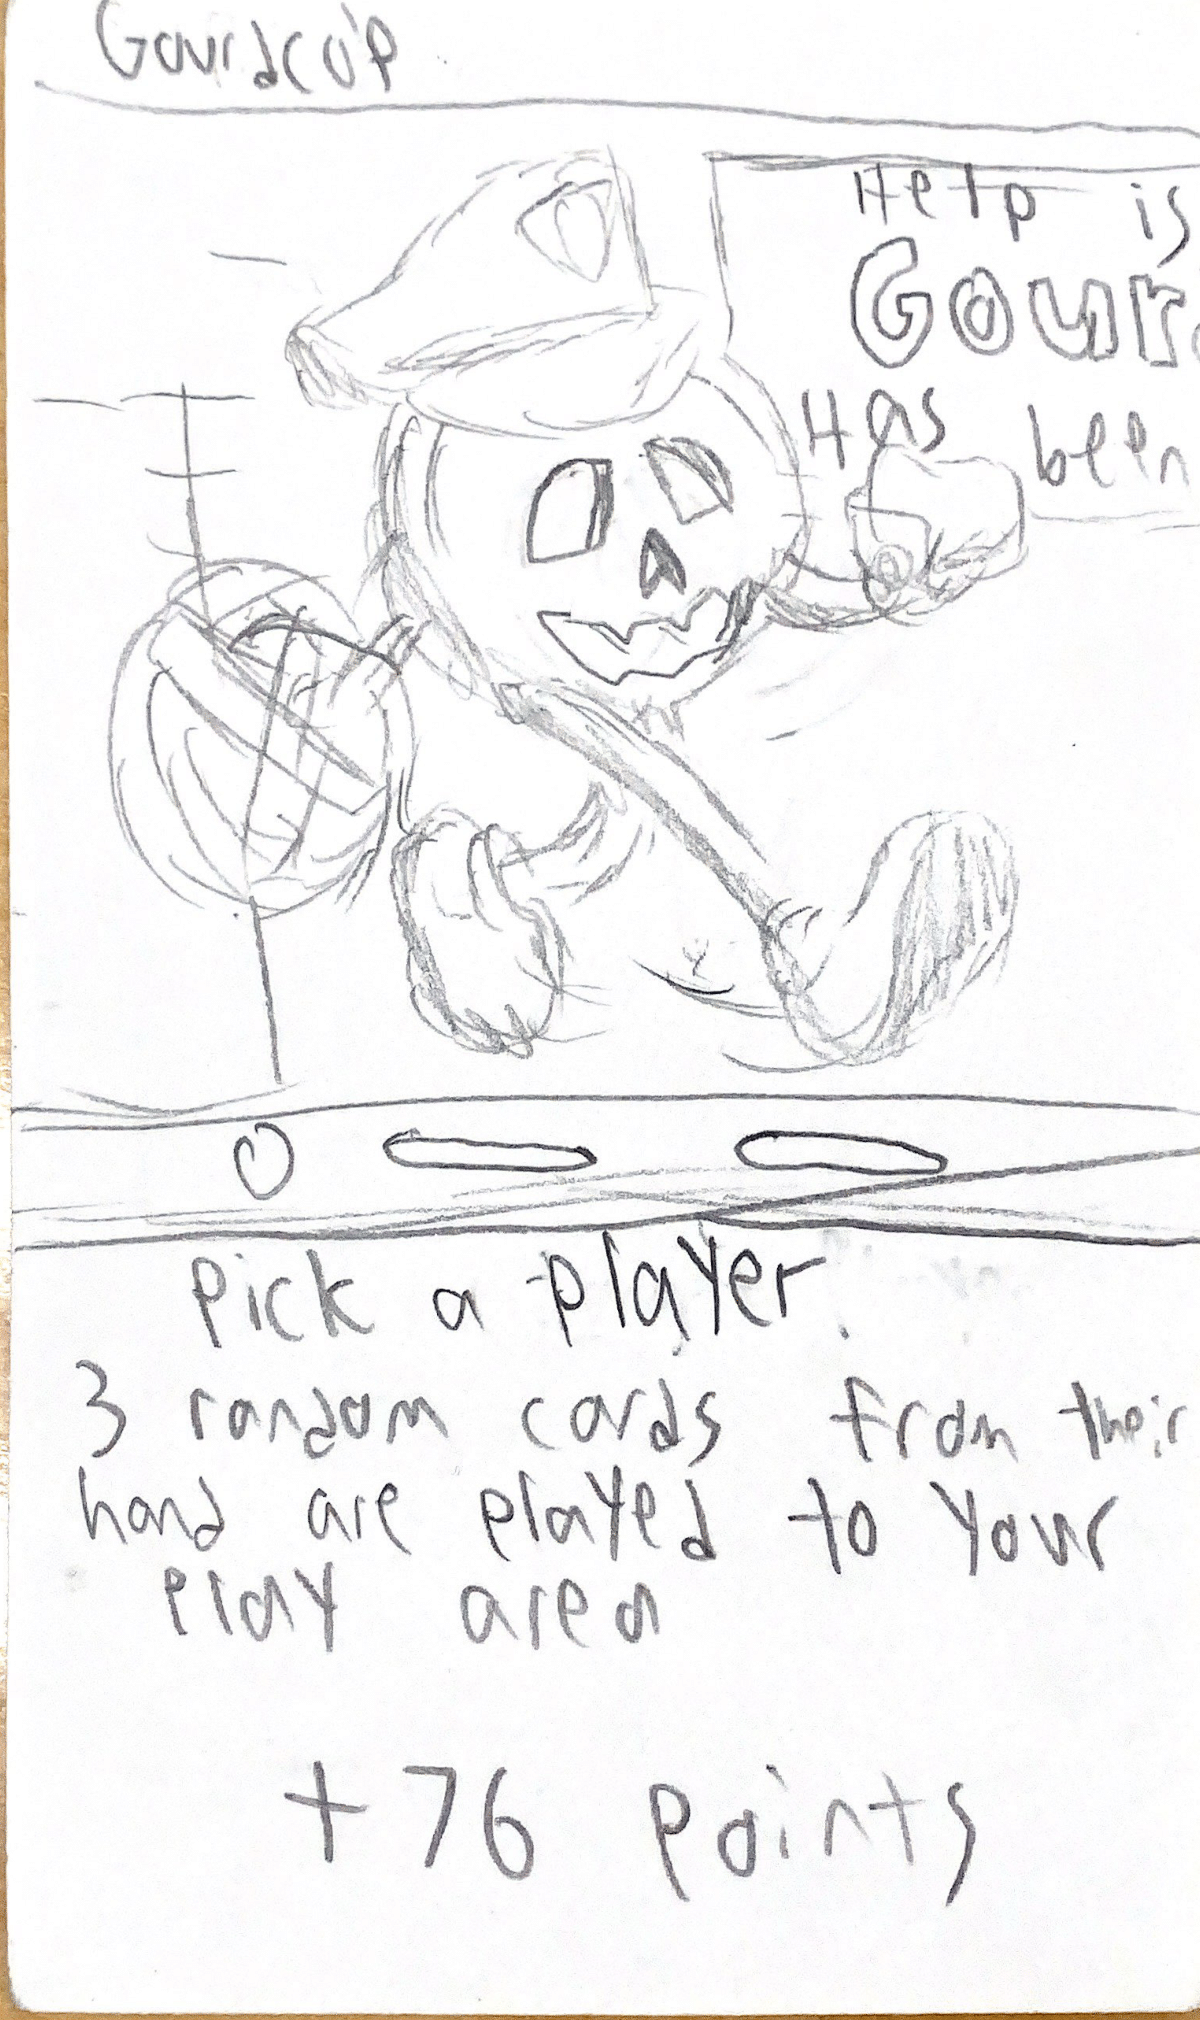 Gourdcop
Help is
Gour
Has been
Pick a player.
3 random cards from their
hand are played to your
play area
+76 points